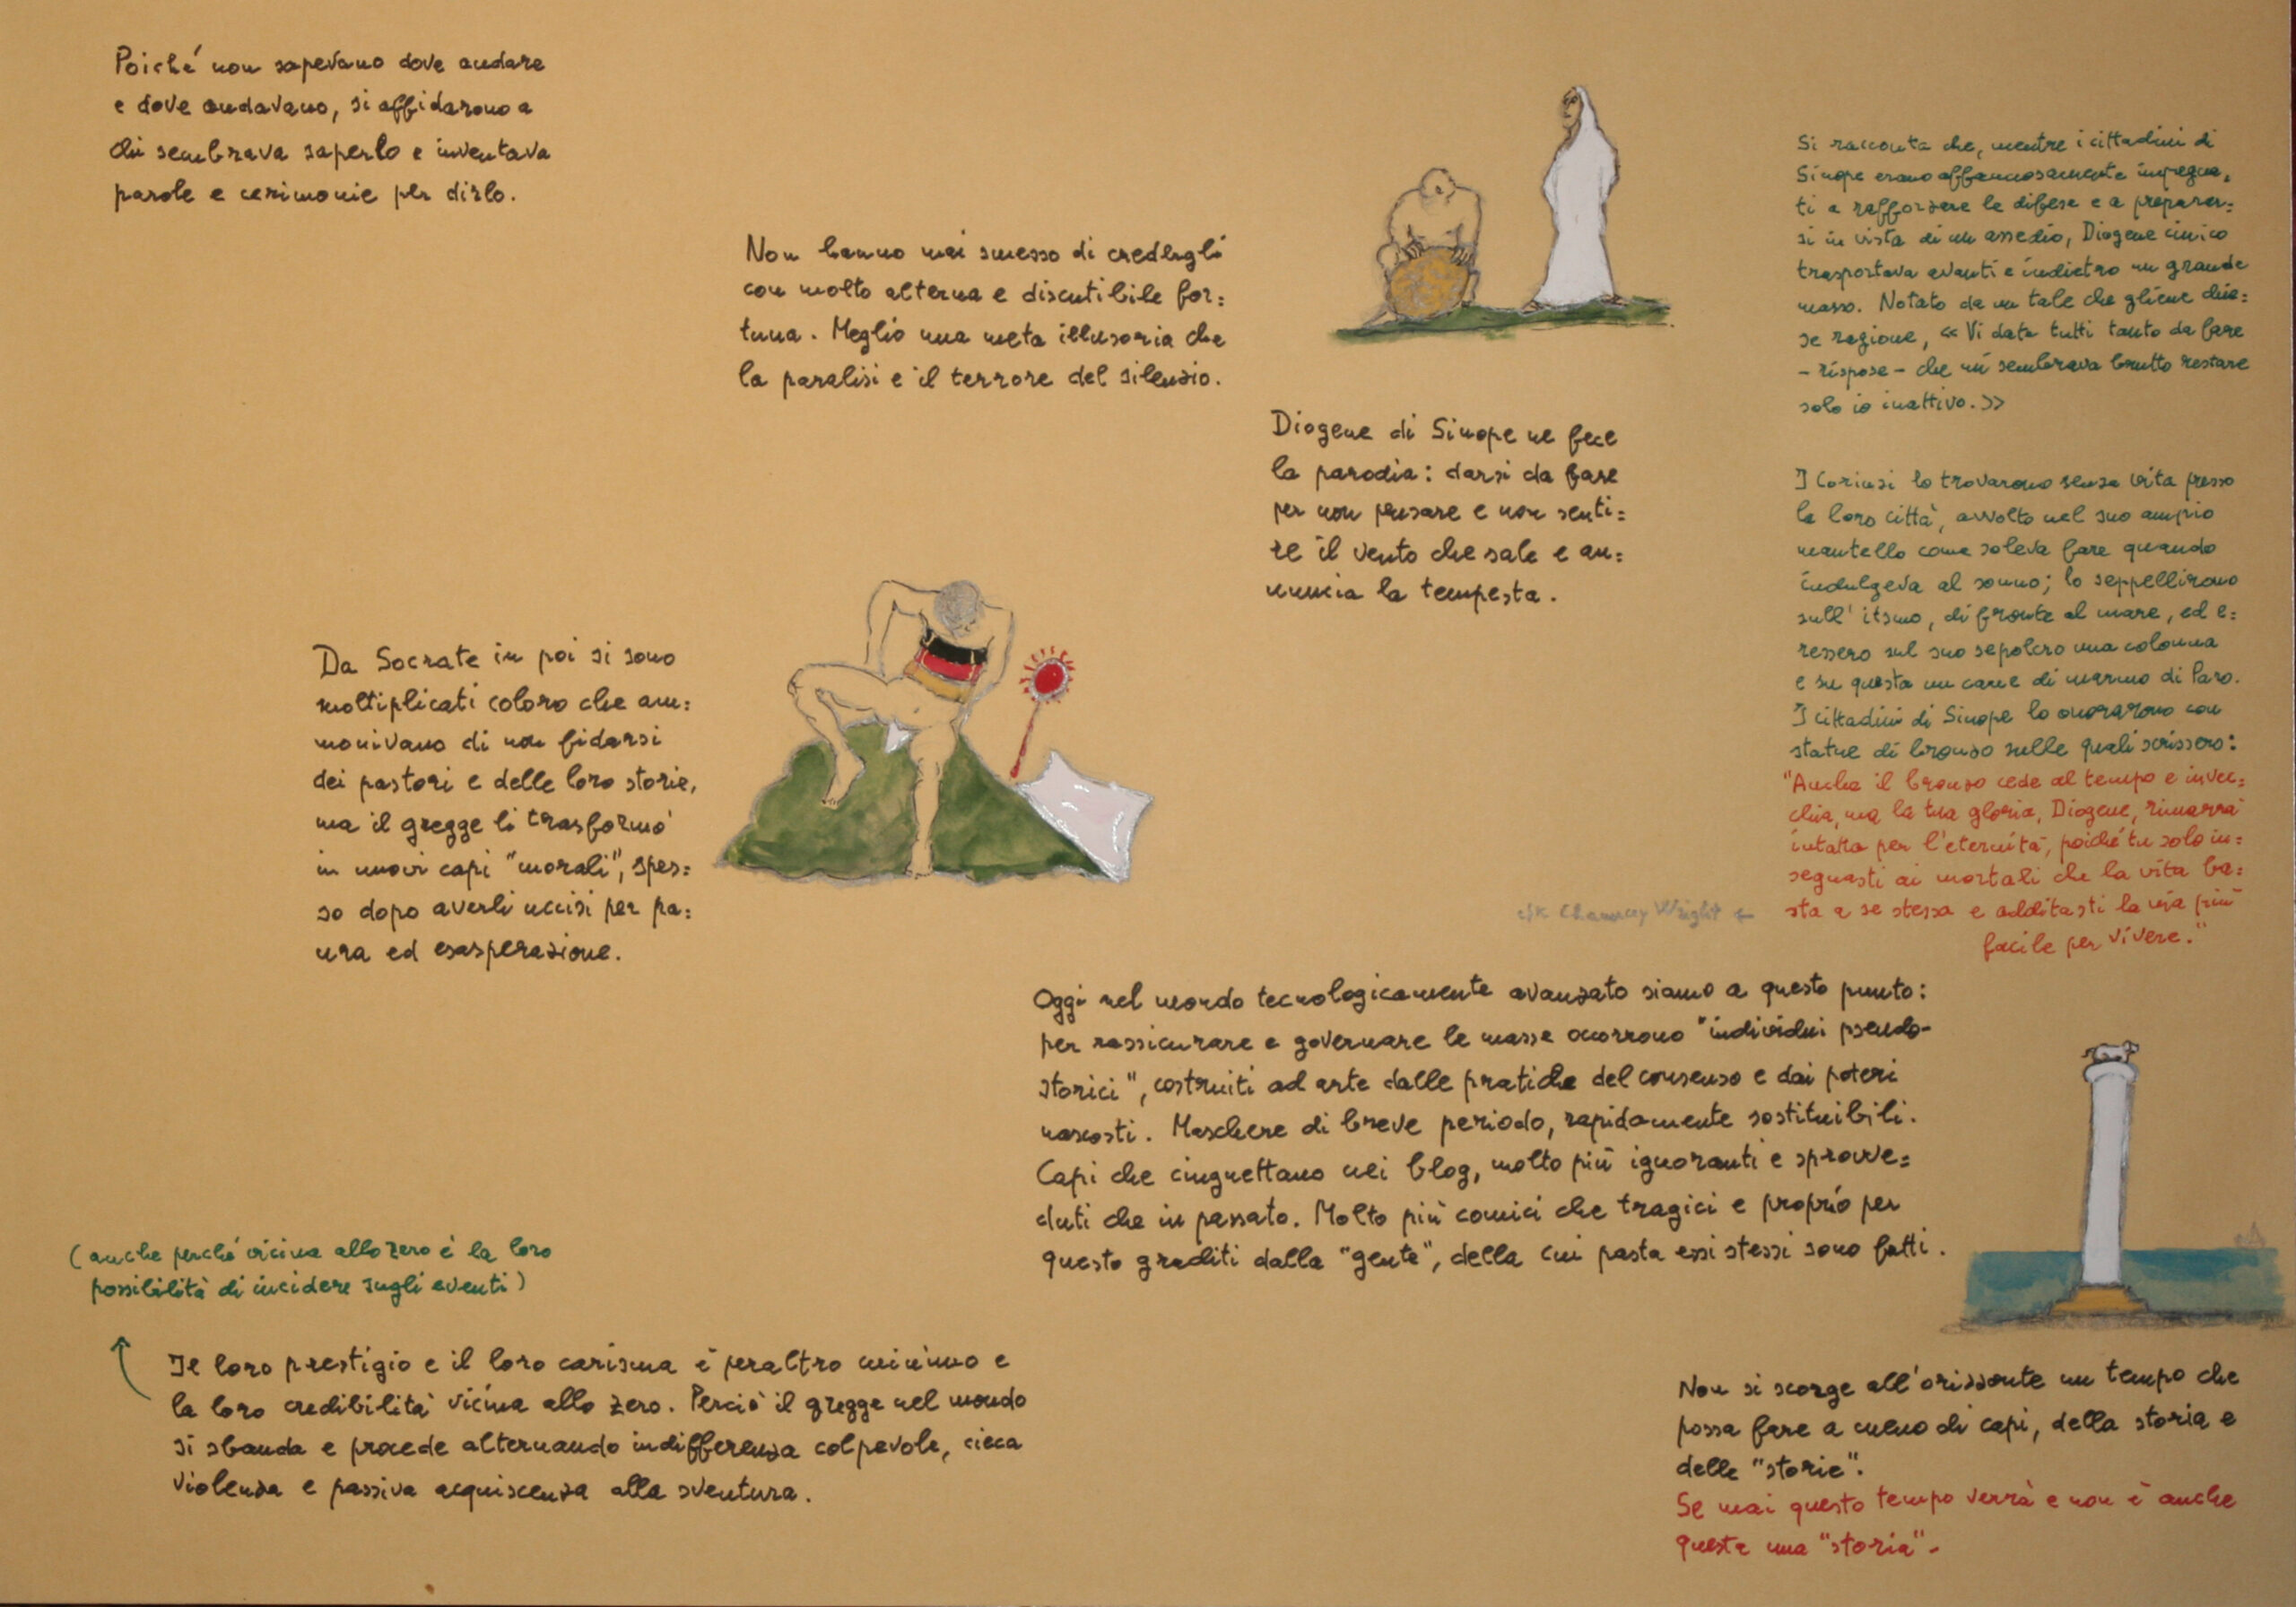 Poiché non sapevano dove andare
e dove andavano, si affidarono a
chi sembrava saperlo e inventava
parole e cerimonie per dirlo.
Non hanno mai smesso di credergli
con molto alterna e discutibile for=
tuna. Meglio una meta illusoria che
la paralisi e il terrore del silenzio.
Diogene di Sinope ne fece
la parodia: darsi da fare
per non pensare e non senti=
re il vento che sale e an=
nuncia la tempesta.
Si racconta che, mentre i cittadini di
Sinope erano affannosamente impegna=
ti a rafforzare le difese e a preparar=
si in vista di un assedio, Diogene cinico
trasportava avanti e indietro un grande
masso. Notato da un tale che gliene chie=
se ragione, «Vi date tutti tanto da fare
- rispose - che mi sembrava brutto restare
solo io inattivo.»
I Corinzi lo trovarono senza vita presso
la loro città, avvolto nel suo ampio
mantello come soleva fare quando
indulgeva al sonno; lo seppellirono
sull' itsmo, di fronte al mare, ed e=
ressero sul suo sepolcro una colonna
e su questa un cane di marmo di Paro.
I cittadini di Sinope lo onorarono con
statue di bronzo sulle quali scrissero:
"Anche il bronzo cede al tempo e invec=
chia, ma la tua gloria, Diogene, rimarrà
intatta per l'eternità, poiché tu solo in=
segnasti ai mortali che la vita ba=
sta a se stessa e additasti la via più
facile per vivere."
Chauncey Wright ←
Da Socrate in poi si sono
moltiplicati coloro che am=
monivano di non fidarsi
dei pastori e delle loro storie,
ma il gregge li trasformò
in nuovi capi "morali", spes=
so dopo averli uccisi per pa=
ura ed esasperazione.
Oggi nel mondo tecnologicamente avanzato siamo a questo punto:
per rassicurare e governare le masse occorrono "individui pseudo-
storici", costruiti ad arte dalle pratiche del consenso e dai poteri
nascosti. Maschere di breve periodo, rapidamente sostituibili.
Capi che cinguettano nei blog, molto più ignoranti e sprovve=
duti che in passato. Molto più comici che tragici e proprio per
questo graditi dalla "gente", della cui pasta essi stessi sono fatti.
(anche perché vicina allo zero è la loro
possibilità di incidere sugli eventi)
Il loro prestigio e il loro carisma è peraltro minimo e
la loro credibilità vicina allo zero. Perciò il gregge nel mondo
si sbanda e procede alternando indifferenza colpevole, cieca
violenza e passiva acquiscenza alla sventura.
Non si scorge all'orizzonte un tempo che
possa fare a meno di capi, della storia e
delle "storie".
Se mai questo tempo verrà e non è anche
questa una "storia".